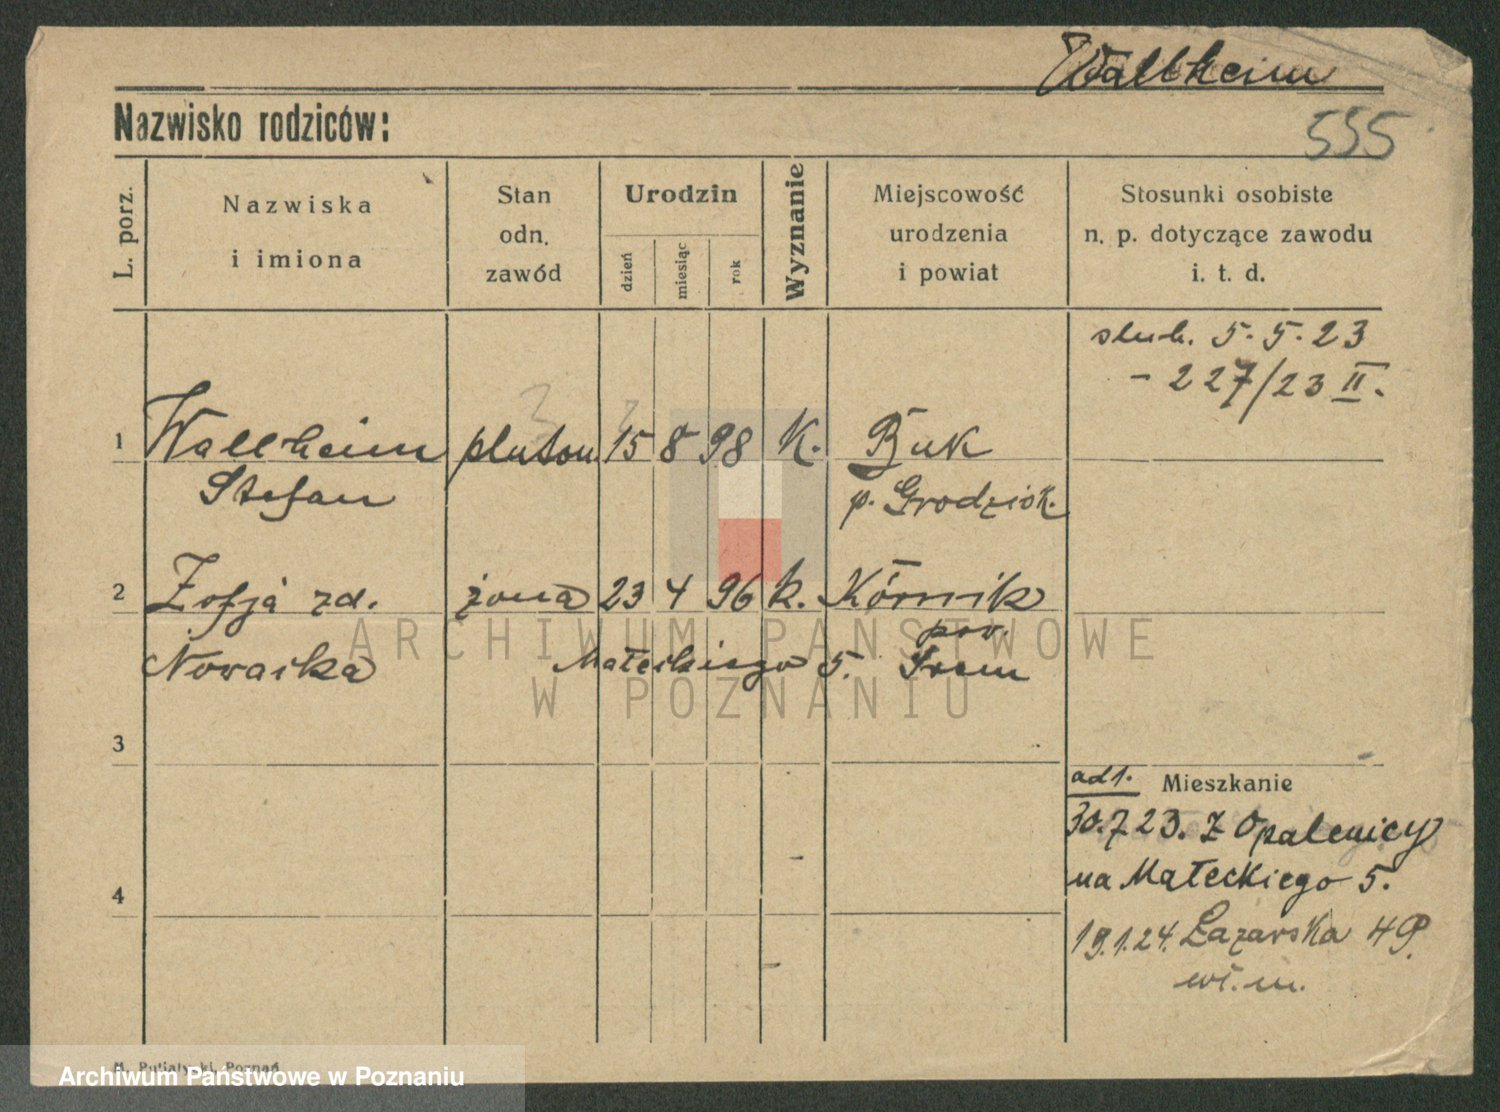 Wallheim
Nazwisko rodziców:
555
L. porz.
Nazwiska
i imiona
Stan
odn.
zawód
Urodzin
dzień
miesiąc
rok
Wyznanie
Miejscowość
urodzenia
i powiat
Stosunki osobiste
n. p. dotyczące zawodu
i. t. d.
slub. 5.5.23
- 227/23 II.
1 Wallheim pluton 15 8 98 K. Buk
Stefan p. Grodzisk.
2 Zofja zd. żona 23 4 96 k. Kórnik
pow.
Nowacka Małeckiego 5. Śrem
ARCHIWUM PAŃSTWOWE
W POZNANIU
3
ad1. Mieszkanie
30.7.23. z Opalenicy
na Małeckiego 5.
4
19.1.24. Łazarska 4 P.
wł. m.
Poznań
Archiwum Państwowe w Poznaniu